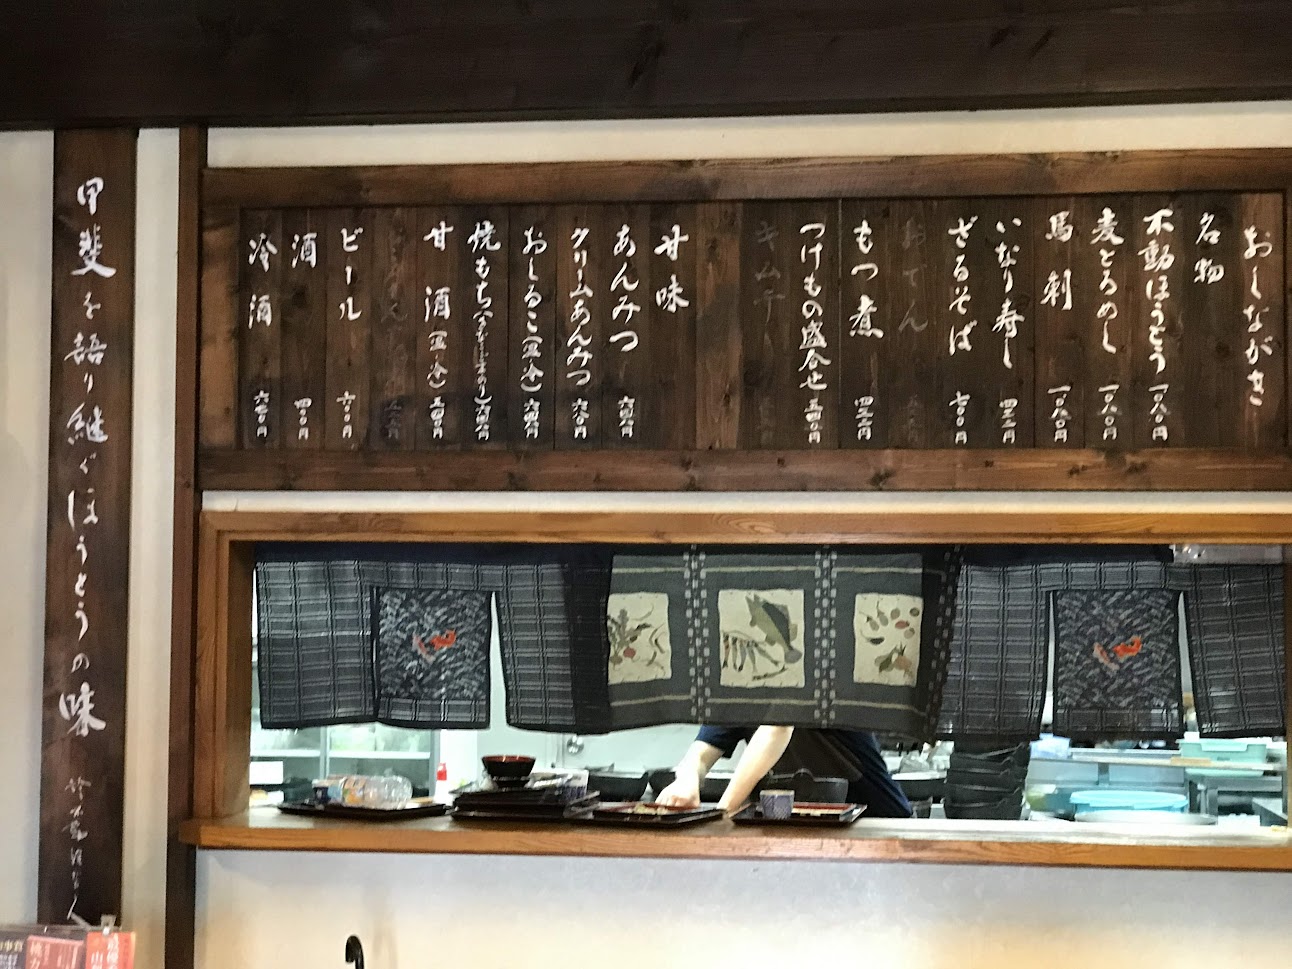 おしながき
名物
不動ほうとう 一〇八〇円
麦とろめし 一〇八〇円
馬刺 一〇八〇円
いなり寿し 四三二円
ざるそば 七〇〇円
おでん
もつ煮 四三二円
つけもの盛合せ 五四〇円
キムチ
甘味
あんみつ 六四八円
クリームあんみつ 六八〇円
おしるこ(温・冷) 六四八円
焼もち 六四八円
甘酒(温・冷) 五四〇円
ビール 六〇〇円
酒 四〇〇円
冷酒 六五〇円
甲斐を語り継ぐほうとうの味